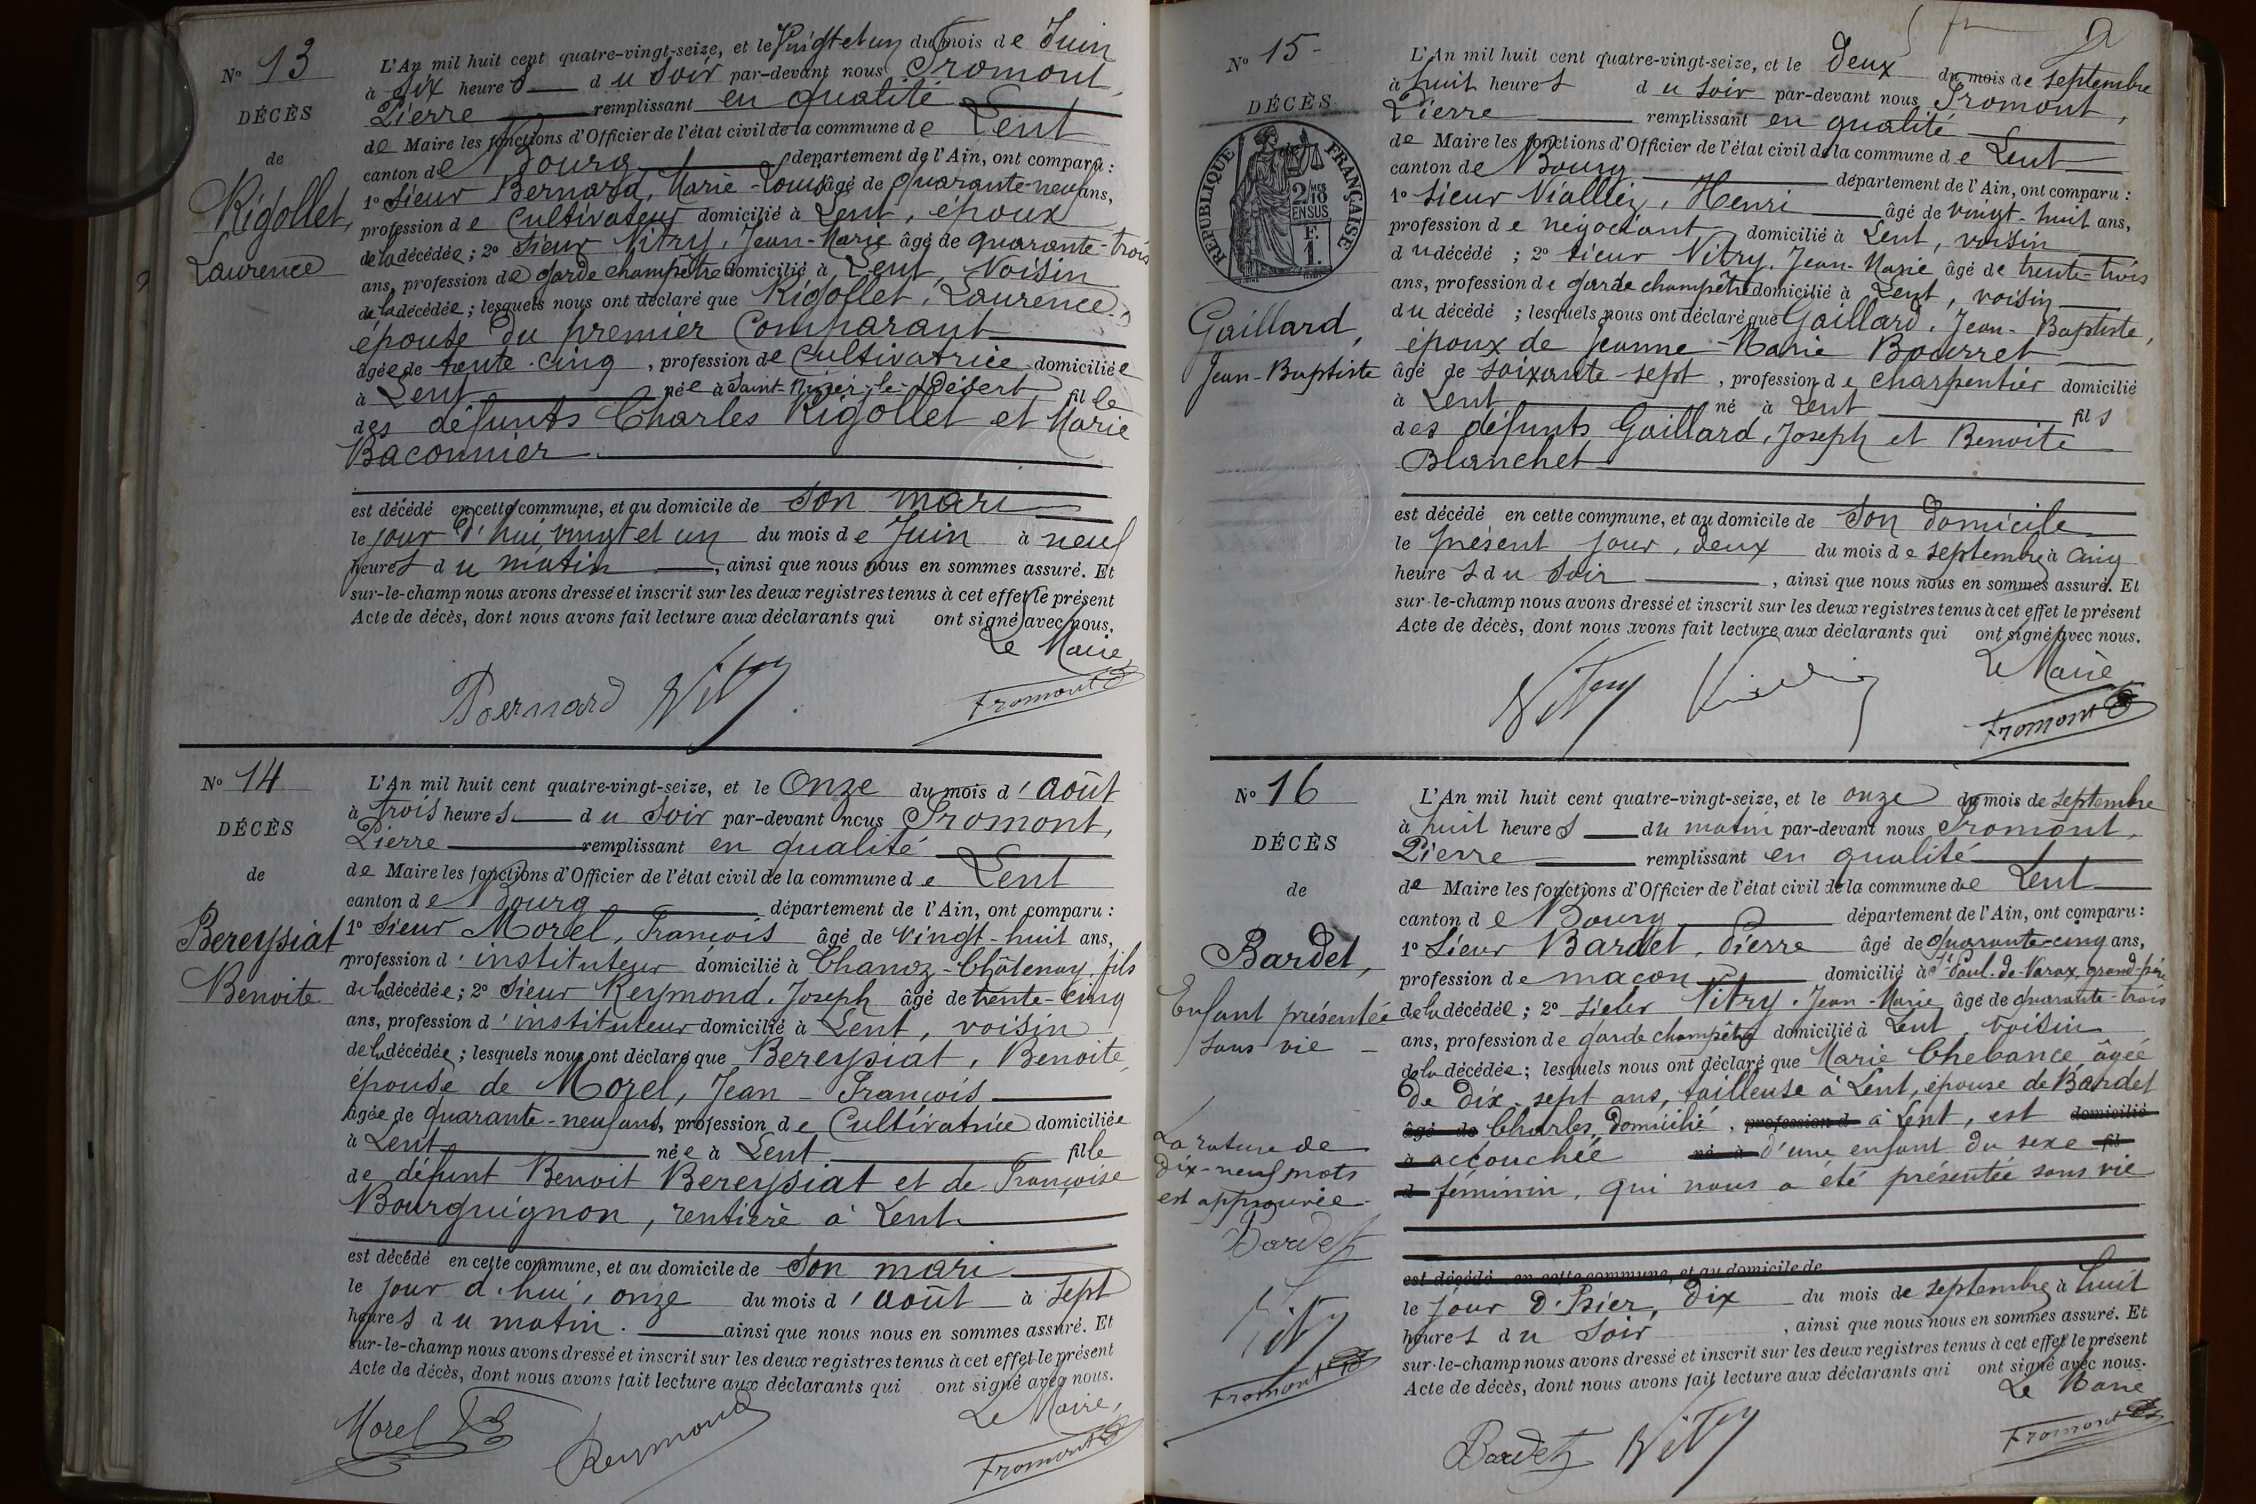 N° 13
DÉCÈS
de
Rigollet,
Laurence
L'An mil huit cent quatre-vingt-seize, et le vingt et un du mois de Juin
à six heures du soir par-devant nous Fromont,
Pierre remplissant en qualité
de Maire les fonctions d'Officier de l'état civil de la commune de Lent
canton de Bourg département de l'Ain, ont comparu :
1° sieur Bernard, Marie-Louis âgé de quarante-neuf ans,
profession de Cultivateur domicilié à Lent, époux
de la décédée ; 2° sieur Vitry, Jean-Marie âgé de quarante-trois
ans, profession de garde champêtre domicilié à Lent, Voisin
de la décédée ; lesquels nous ont déclaré que Rigollet, Laurence,
épouse du premier Comparant
âgée de trente-cinq, profession de Cultivatrice domiciliée
à Lent née à Saint-Nizier-le-Désert fille
des défunts Charles Rigollet et Marie
Baconnier
est décédé en cette commune, et au domicile de son mari
le jour d'hui vingt et un du mois de Juin à neuf
heures du matin, ainsi que nous nous en sommes assuré. Et
sur-le-champ nous avons dressé et inscrit sur les deux registres tenus à cet effet le présent
Acte de décès, dont nous avons fait lecture aux déclarants qui ont signé avec nous.
Le Maire
Bernard Vitry Fromont
N° 14
DÉCÈS
de
Bereysiat
Benoite
L'An mil huit cent quatre-vingt-seize, et le Onze du mois d'août
à trois heures du soir par-devant nous Fromont,
Pierre remplissant en qualité
de Maire les fonctions d'Officier de l'état civil de la commune de Lent
canton de Bourg département de l'Ain, ont comparu :
1° sieur Morel, François âgé de vingt-huit ans,
profession d'instituteur domicilié à Chanoz-Châtenay, fils
de la décédée ; 2° sieur Reymond, Joseph âgé de trente-cinq
ans, profession d'instituteur domicilié à Lent, voisin
de la décédée ; lesquels nous ont déclaré que Bereysiat, Benoite,
épouse de Morel, Jean-François
âgée de quarante-neuf ans, profession de Cultivatrice domiciliée
à Lent née à Lent fille
de défunt Benoit Bereysiat et de Françoise
Bourguignon, rentière à Lent
est décédé en cette commune, et au domicile de son mari
le jour d'hui, onze du mois d'août à sept
heures du matin. ainsi que nous nous en sommes assuré. Et
sur-le-champ nous avons dressé et inscrit sur les deux registres tenus à cet effet le présent
Acte de décès, dont nous avons fait lecture aux déclarants qui ont signé avec nous.
Le Maire,
Morel Reymond Fromont
N° 15
DÉCÈS
RÉPUBLIQUE FRANÇAISE
2/10
EN SUS
F.
1.
Gaillard,
Jean-Baptiste
L'An mil huit cent quatre-vingt-seize, et le deux du mois de septembre
à huit heures du soir par-devant nous Fromont,
Pierre remplissant en qualité
de Maire les fonctions d'Officier de l'état civil de la commune de Lent
canton de Bourg département de l'Ain, ont comparu :
1° sieur Viallez, Henri âgé de vingt-huit ans,
profession de négociant domicilié à Lent, voisin
du décédé ; 2° sieur Vitry, Jean-Marie âgé de trente-trois
ans, profession de garde champêtre domicilié à Lent, voisin
du décédé ; lesquels nous ont déclaré que Gaillard, Jean-Baptiste,
époux de Jeanne-Marie Bourret
âgé de soixante-sept, profession de charpentier domicilié
à Lent né à Lent fils
des défunts Gaillard, Joseph et Benoite
Blanchet
est décédé en cette commune, et au domicile de son domicile
le présent jour, deux du mois de septembre à cinq
heures du soir, ainsi que nous nous en sommes assuré. Et
sur-le-champ nous avons dressé et inscrit sur les deux registres tenus à cet effet le présent
Acte de décès, dont nous avons fait lecture aux déclarants qui ont signé avec nous.
Le Maire
Vitry Fromont
N° 16
DÉCÈS
de
Bardet,
Enfant présentée
sans vie
La rature de
dix-neuf mots
est approuvée
Bardet
Vitry
Fromont
L'An mil huit cent quatre-vingt-seize, et le onze du mois de septembre
à huit heures du matin par-devant nous Fromont,
Pierre remplissant en qualité
de Maire les fonctions d'Officier de l'état civil de la commune de Lent
canton de Bourg département de l'Ain, ont comparu :
1° sieur Bardet, Pierre âgé de quarante-cinq ans,
profession de maçon domicilié à St Paul-de-Varax, grand-père
de la décédée ; 2° sieur Vitry, Jean-Marie âgé de quarante-trois
ans, profession de garde champêtre domicilié à Lent, voisin
de la décédée ; lesquels nous ont déclaré que Marie Chebance, âgée
de dix-sept ans, tailleuse à Lent, épouse de Bardet
âgé de Charles, domicilié, profession d à Lent, est domicilié
à accouchée né à d'une enfant du sexe fil
d féminin, qui nous a été présentée sans vie
est décédé en cette commune, et au domicile de
le jour d'hier, dix du mois de septembre à huit
heures du soir, ainsi que nous nous en sommes assuré. Et
sur-le-champ nous avons dressé et inscrit sur les deux registres tenus à cet effet le présent
Acte de décès, dont nous avons fait lecture aux déclarants qui ont signé avec nous.
Le Maire
Bardet Vitry Fromont